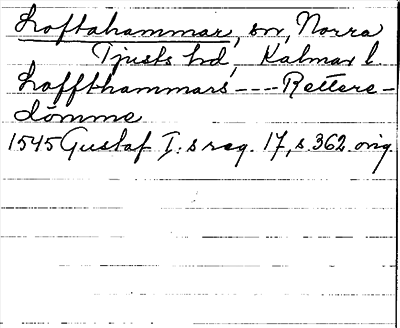 Loftahammar, sn, Norra
Tjusts hd, Kalmar l.
Loffthammars ---- Rettere-
dömme
1545 Gustaf I:s reg. 17, s. 362. orig.